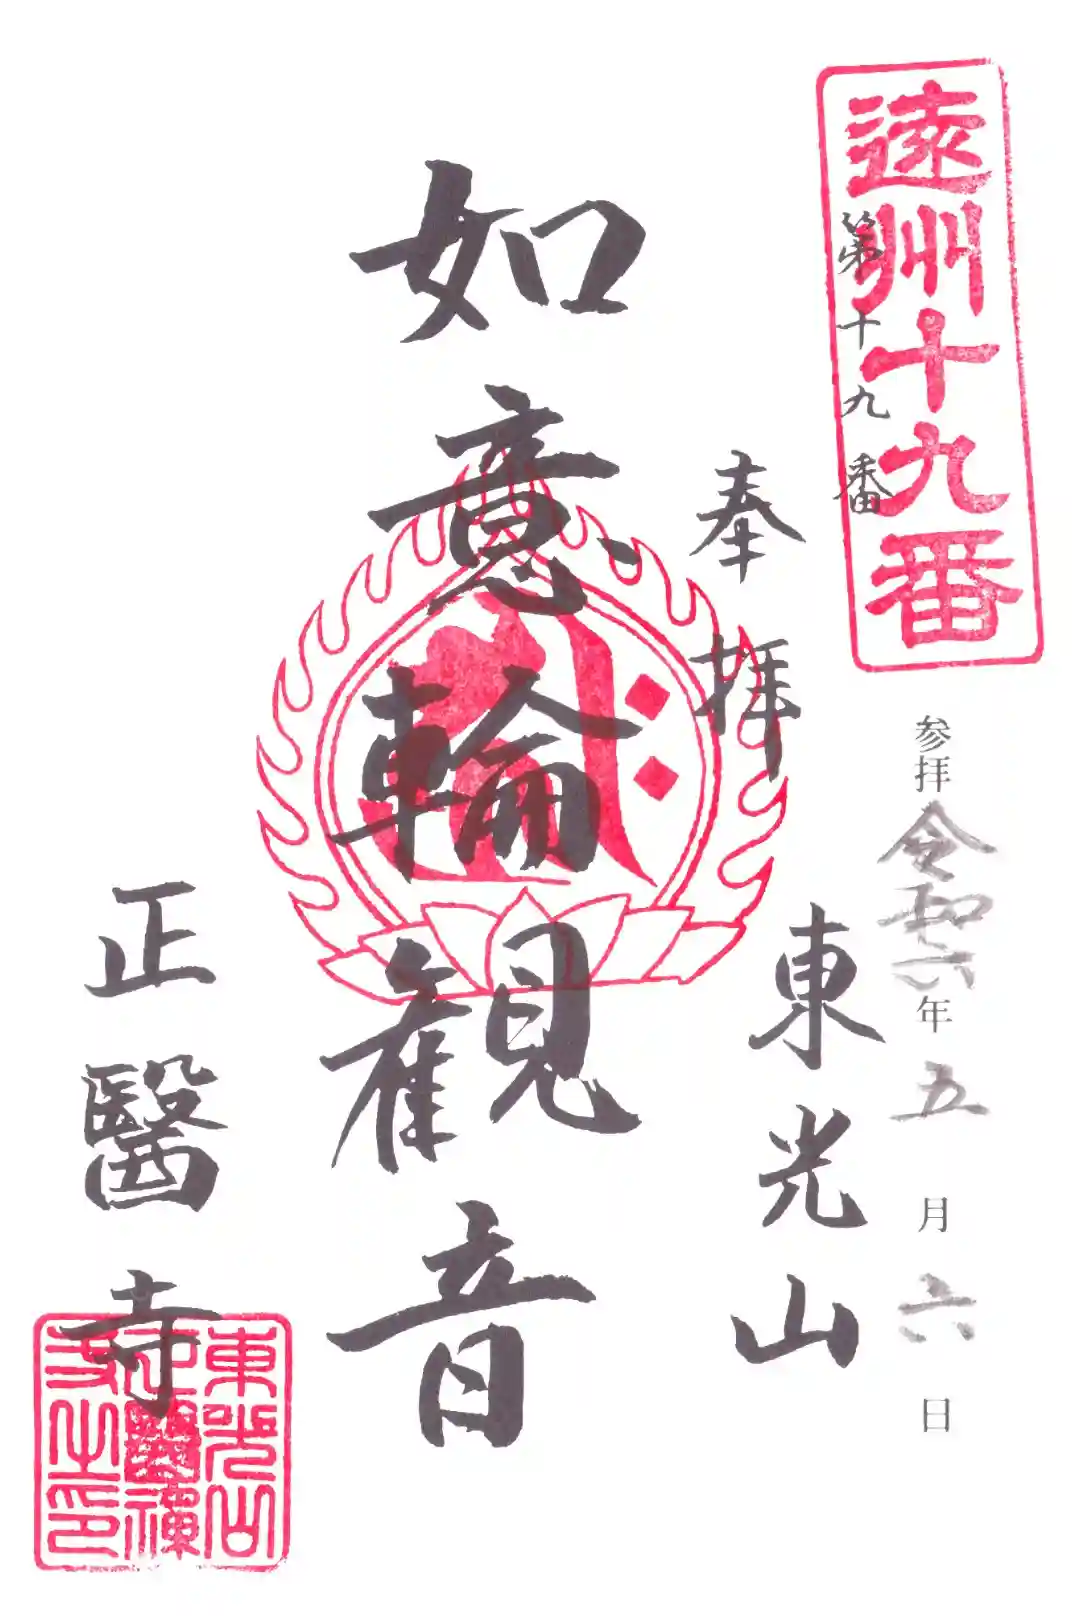 遠州十九番
第十九番
参拝 令和六年五月六日
奉拝
東光山
如意輪観音
正醫寺
東光山
正醫禅
寺之印